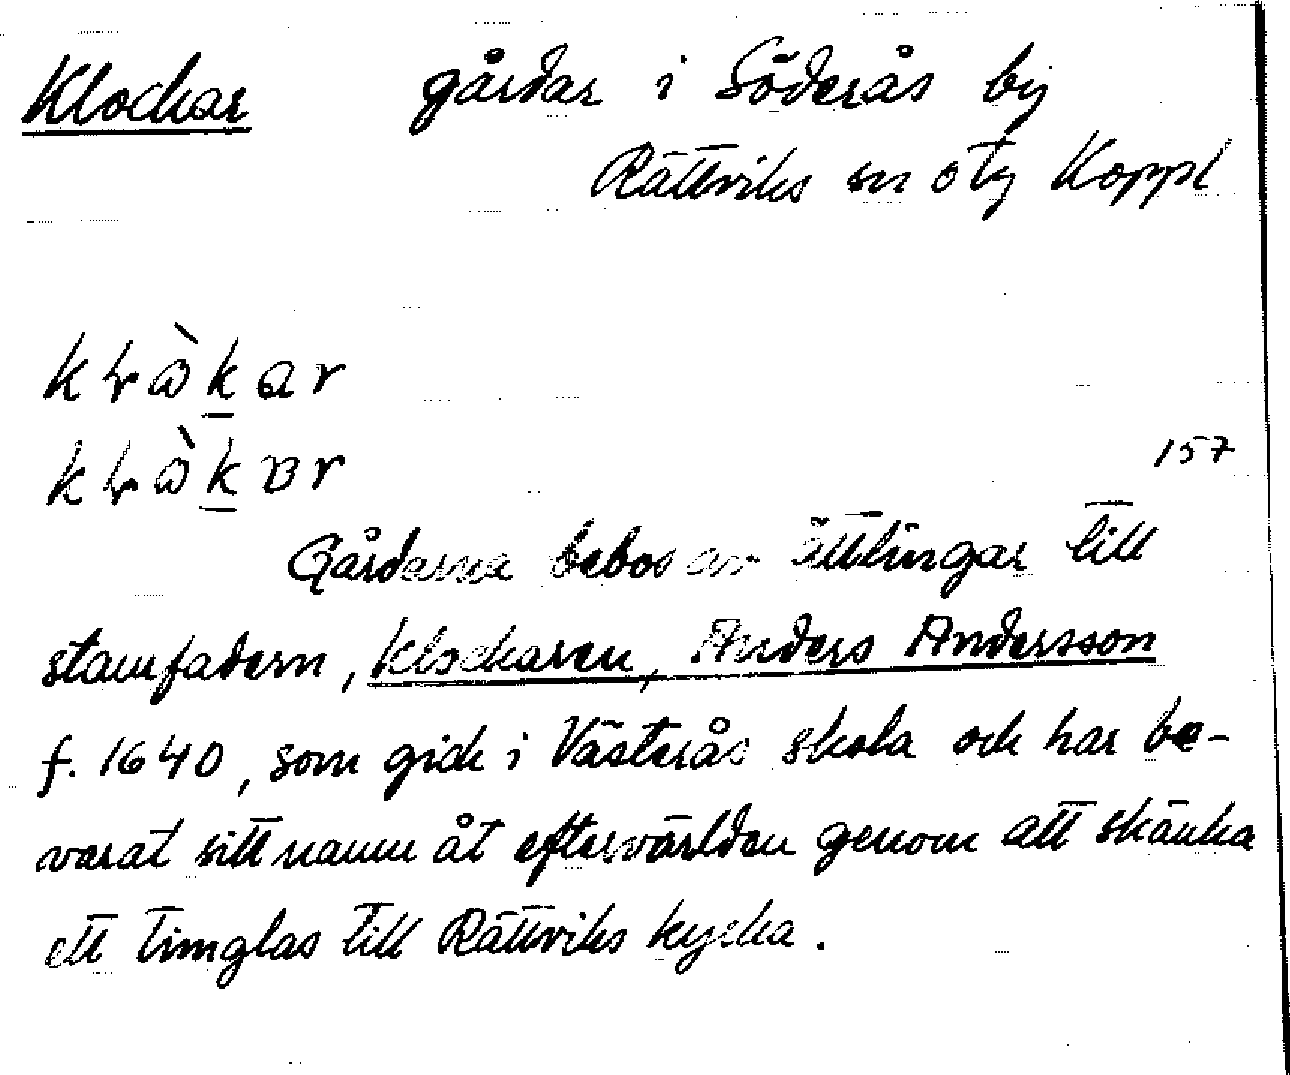 Klockar gårdar i Söderås by
Rättviks sn o tg Koppl
157
Gårdarna bebos av ättlingar till
stamfadern, klockaren, Anders Andersson
f. 1640, som gick i Västerås skola och har be-
varat sitt namn åt eftervärlden genom att skänka
ett timglas till Rättviks kyrka.